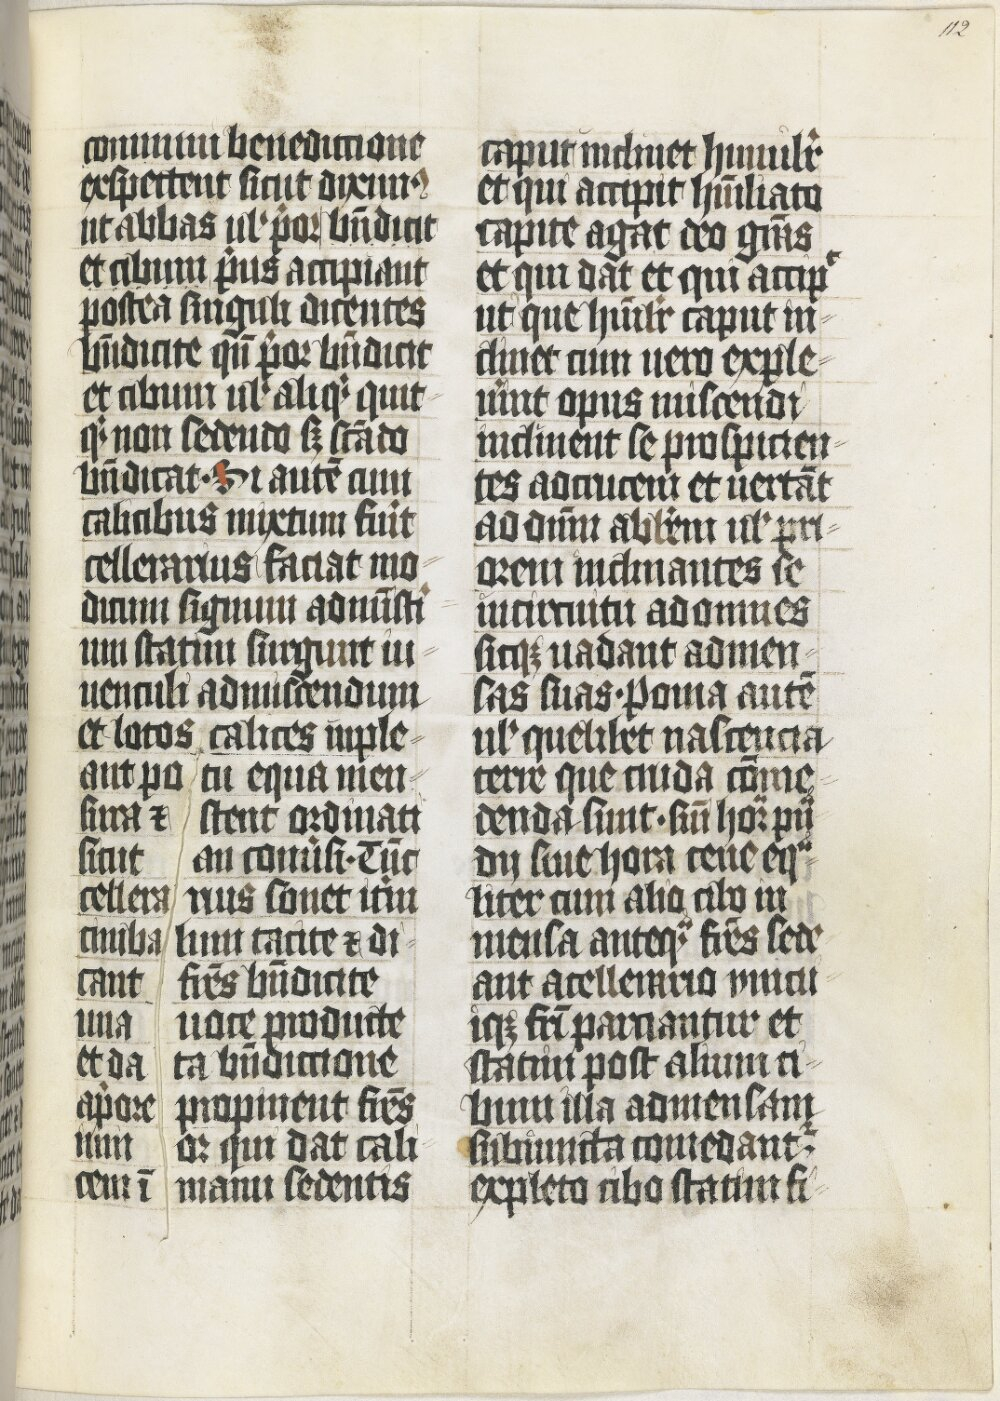 112
communi benedictione
exspectent sicut diximꝰ
ut abbas ul' p̾or bn̄dicit
et cibum p̾us accipiant
postea singuli dicentes
bn̄dicite qn̄ p̾or bn̄dicit
et cibum ul' aliqͥ quit
qͥ non sedendo sꝫ stādo
bn̄dicat. Si autē cum
calicibus mixtum fūit
cellerarius faciat mo-
dicum signum admīstͥ
um statim surgunt iu-
uenculi admiscendum
et lotos calices imple-
ant potu equa men-
sura ⁊ stent ordinati
sicut an conuͥsi. Tūc
cellerarius sonet itm̄
cimbalum tacite ⁊ di-
cant frēs bn̄dicite
una uoce producte
et data bn̄dictione
ap̾ore propinent frēs
min or qui dat cali-
cem ī manu sedentis
caput inclinet humilr̄
et qui accipit hūiliato
capite agat deo gr̄as
et qui dat et qui accip̾
ut que hūilr̄ caput in-
clinet cum uero exple-
uͥint opus miscendi
inclinent se prospicien-
tes adcrucem et uertāt
ad dn̄m abb̄em ul' pri-
orem inclinantes se
incircuitu ad omnes
sicqꝫ uadant admen-
sas suas. Poma autē
ul' quelibet nascencia
terre que cruda cōme-
denda sunt. siū hoꝝ pn̄-
dij siue hora cene eqͣ-
liter cum alio cibo in
mensa anteqͣ frēs sede-
ant acellerario unicu-
iqꝫ frī parciantur et
statim post alium ci-
bum illa admensam
subiuncta comedantꝛ̄
expleto cibo statim si-